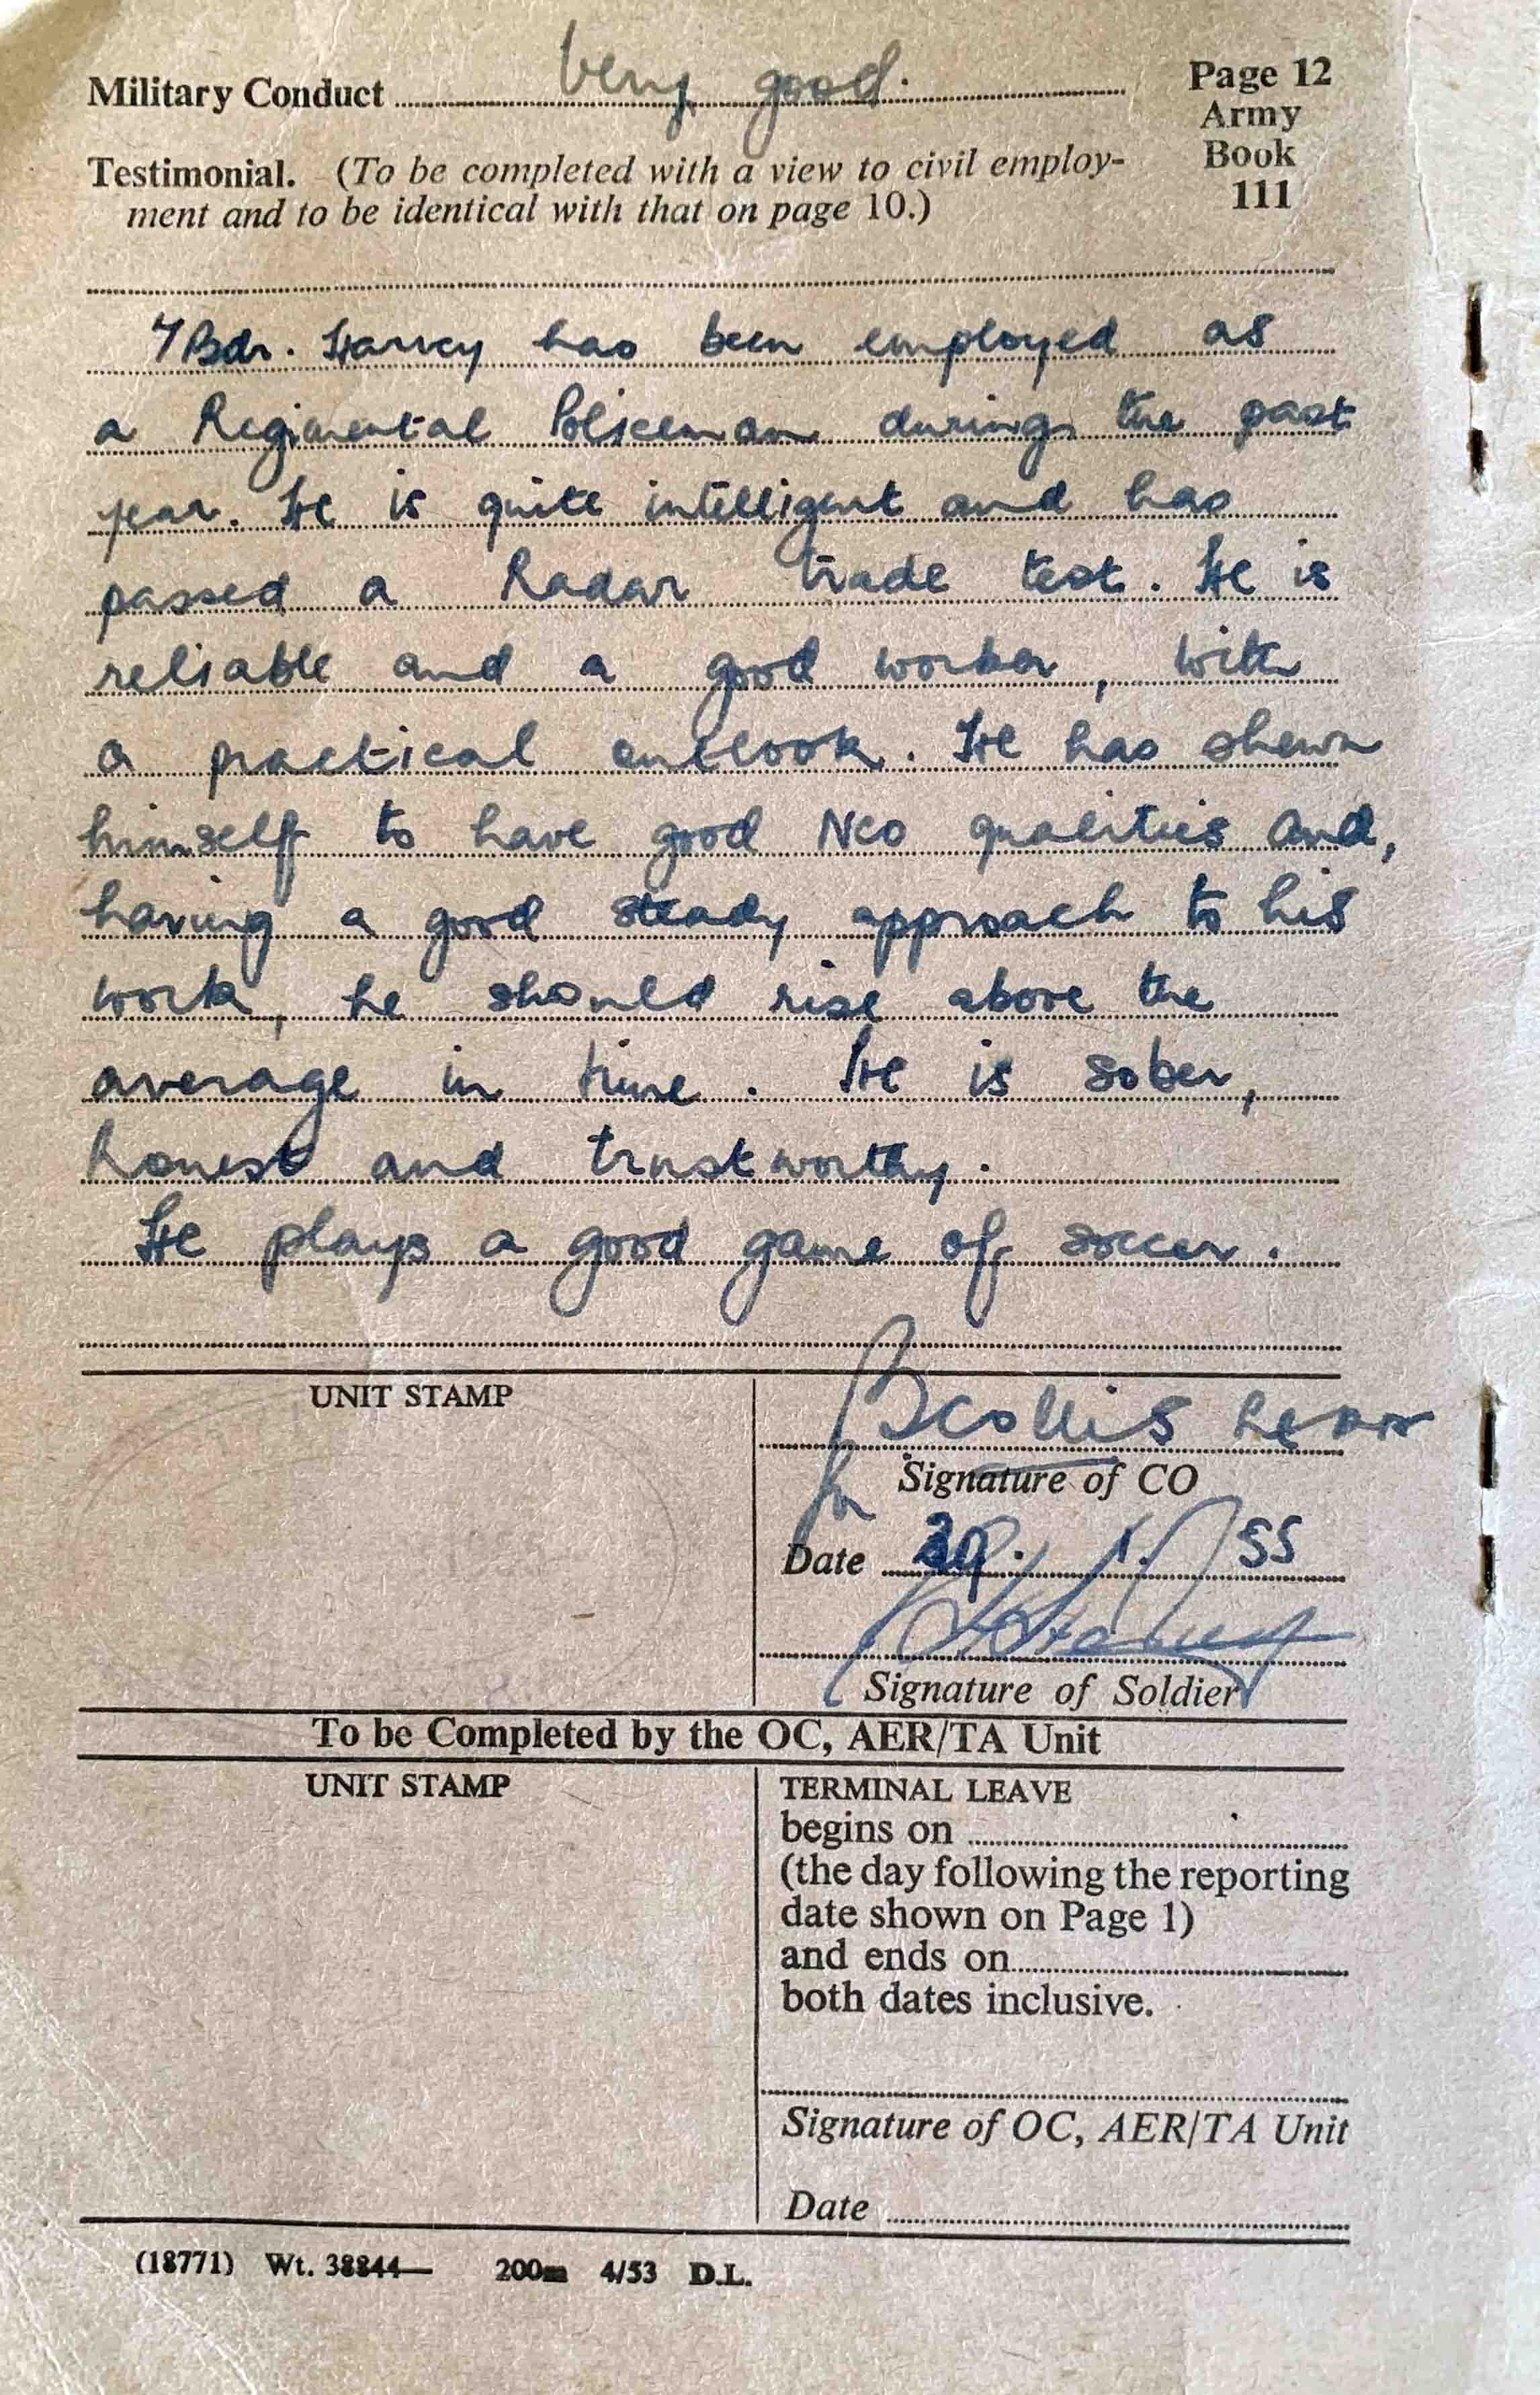 Military Conduct very good.
Page 12
Army
Book
111
Testimonial. (To be completed with a view to civil employ-
ment and to be identical with that on page 10.)
Bdr. Harvey has been employed as
a Regimental Policeman during the past
year. He is quite intelligent and has
passed a Radar trade test. He is
reliable and a good worker, with
a practical outlook. He has shewn
himself to have good NCO qualities and,
having a good steady approach to his
work, he should rise above the
average in time. He is sober,
honest and trustworthy.
He plays a good game of soccer.
UNIT STAMP
Collis
for
Signature of CO
Date 1. 55
Signature of Soldier
To be Completed by the OC, AER/TA Unit
UNIT STAMP
TERMINAL LEAVE
begins on
(the day following the reporting
date shown on Page 1)
and ends on
both dates inclusive.
Signature of OC, AER/TA Unit
Date
(18771) Wt. 38844— 200m 4/53 D.L.